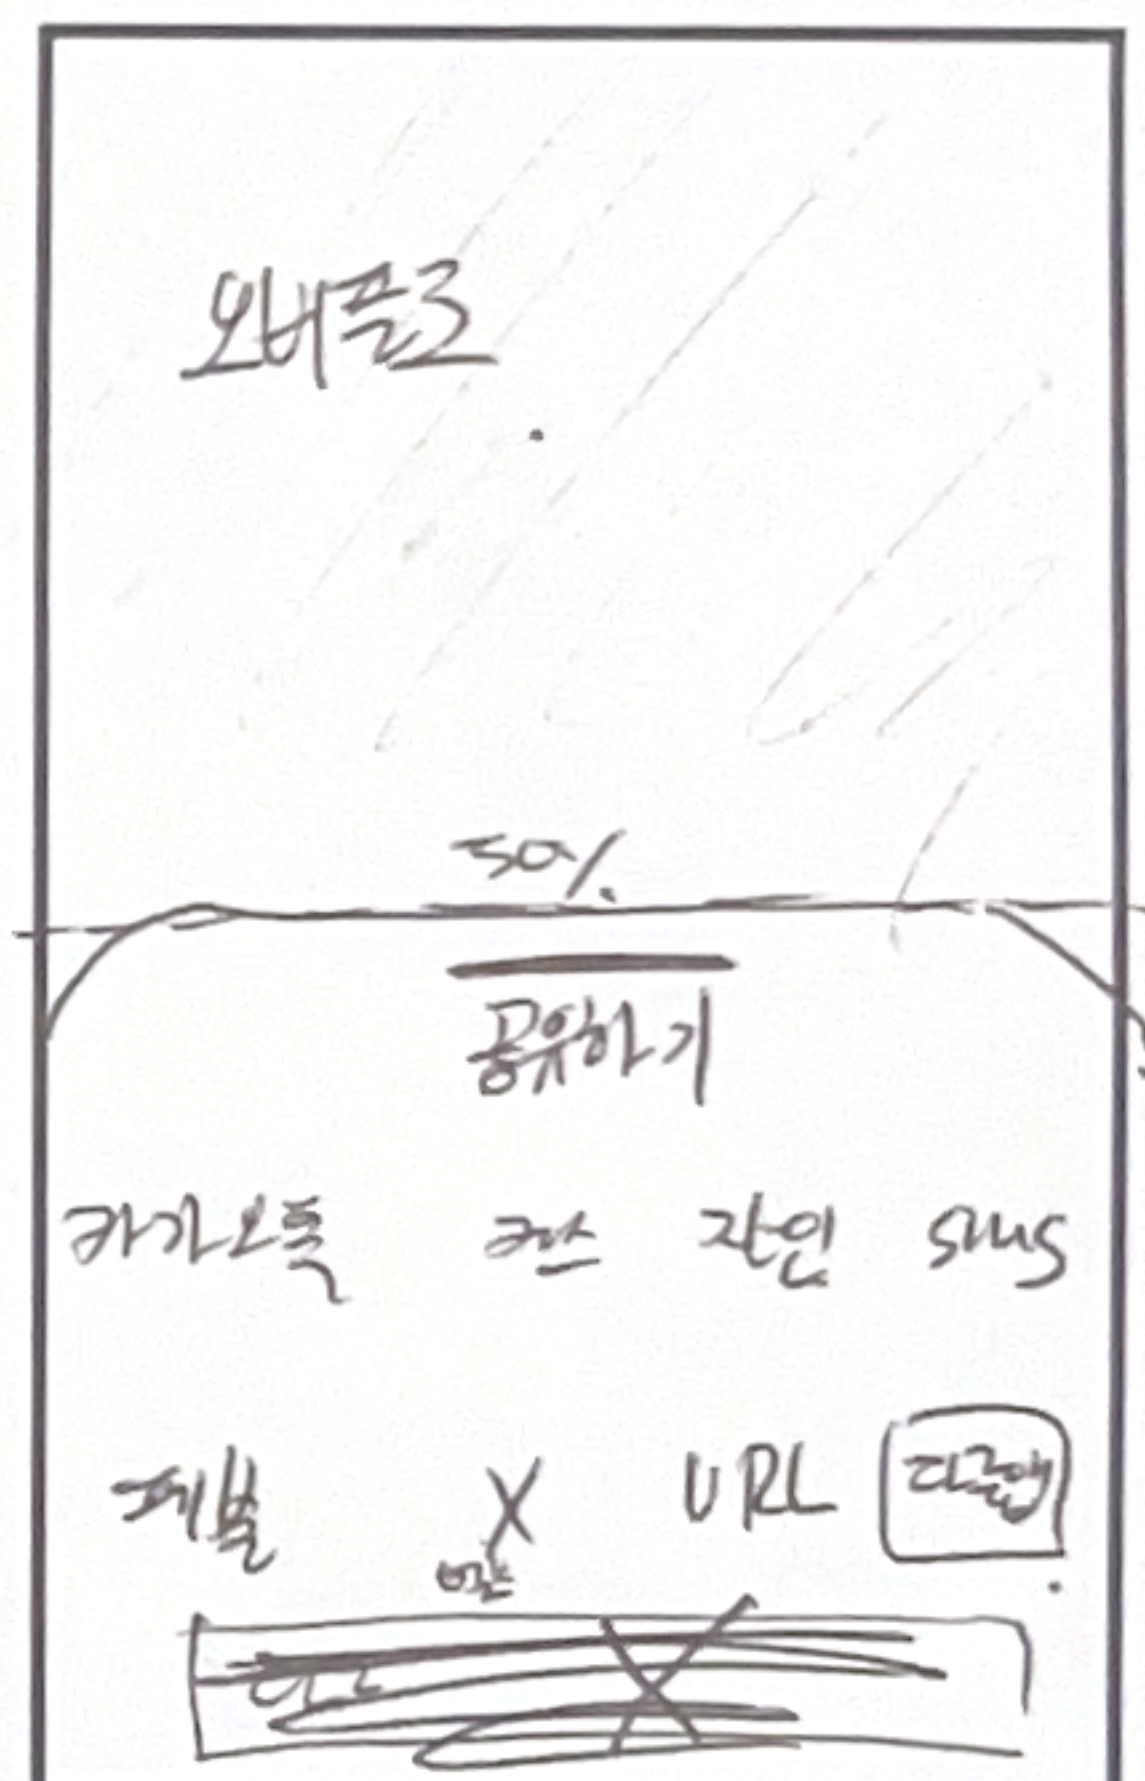 오버플로
50%
공유하기
카카오톡 라인 SMS
페북 X URL 다른앱